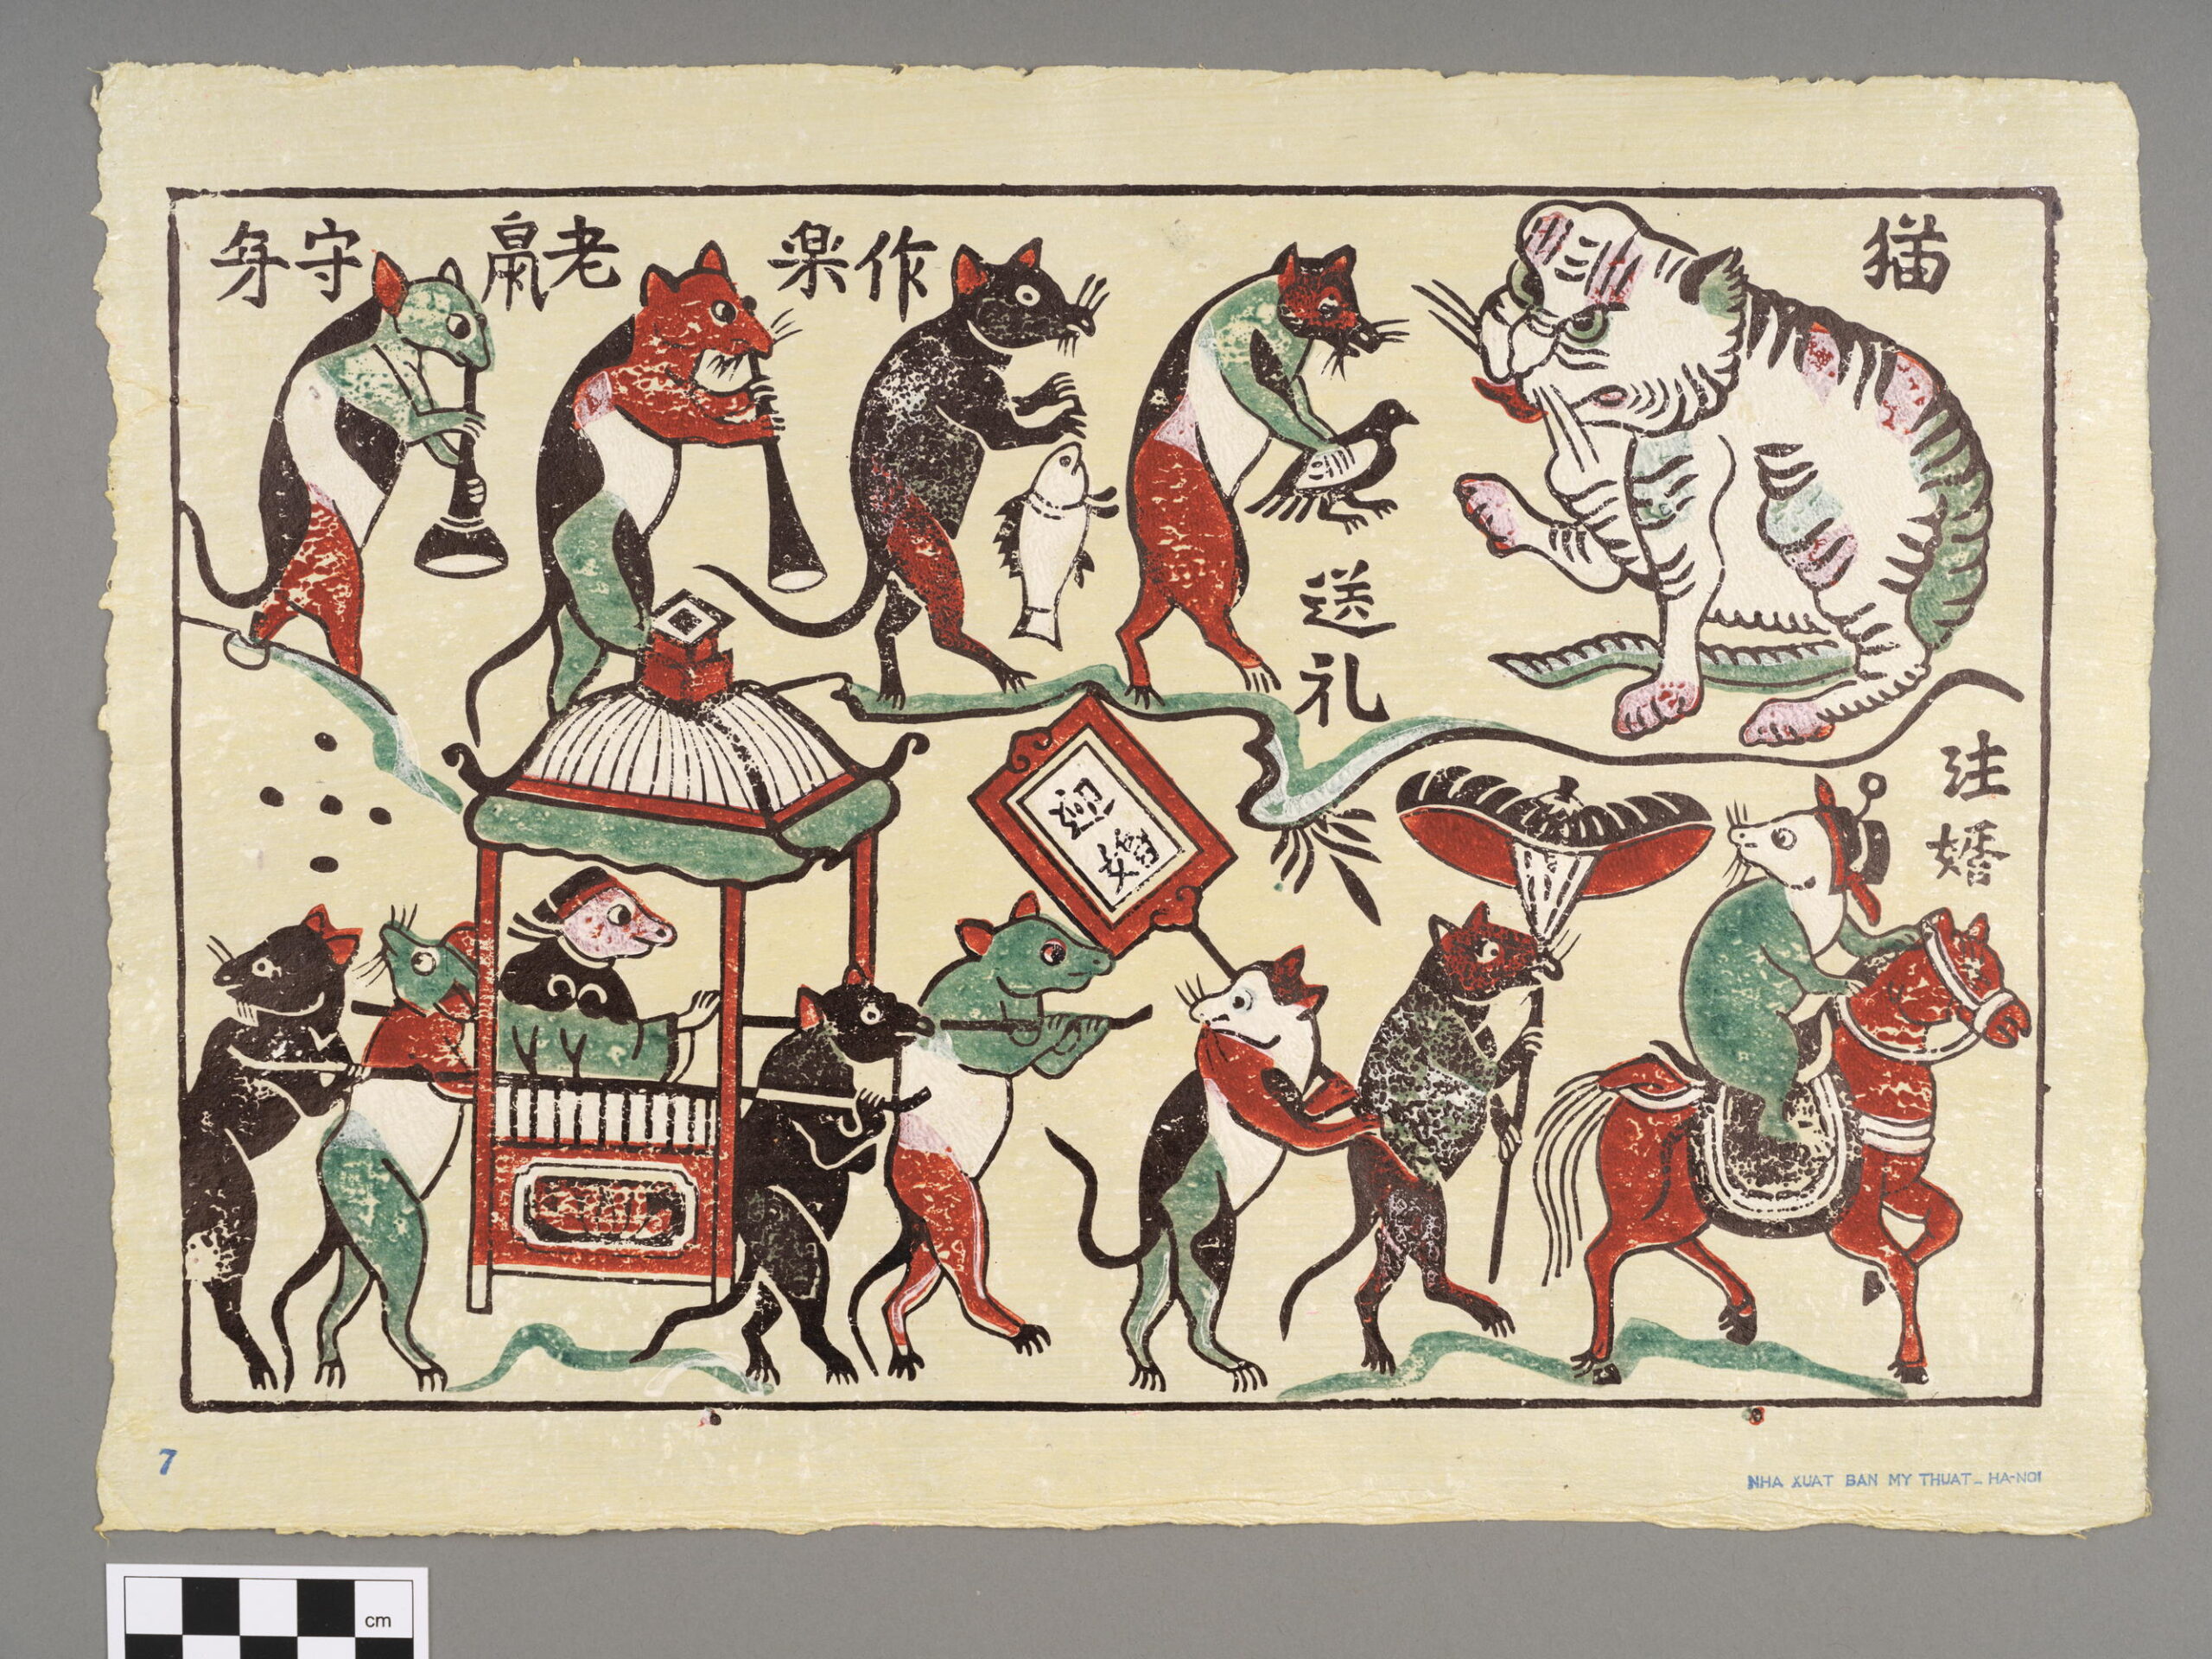 猫
作楽
老鼠
守身
送
礼
注
婚
迎
婚
7
NHA XUAT BAN MY THUAT_ HA-NOI
cm